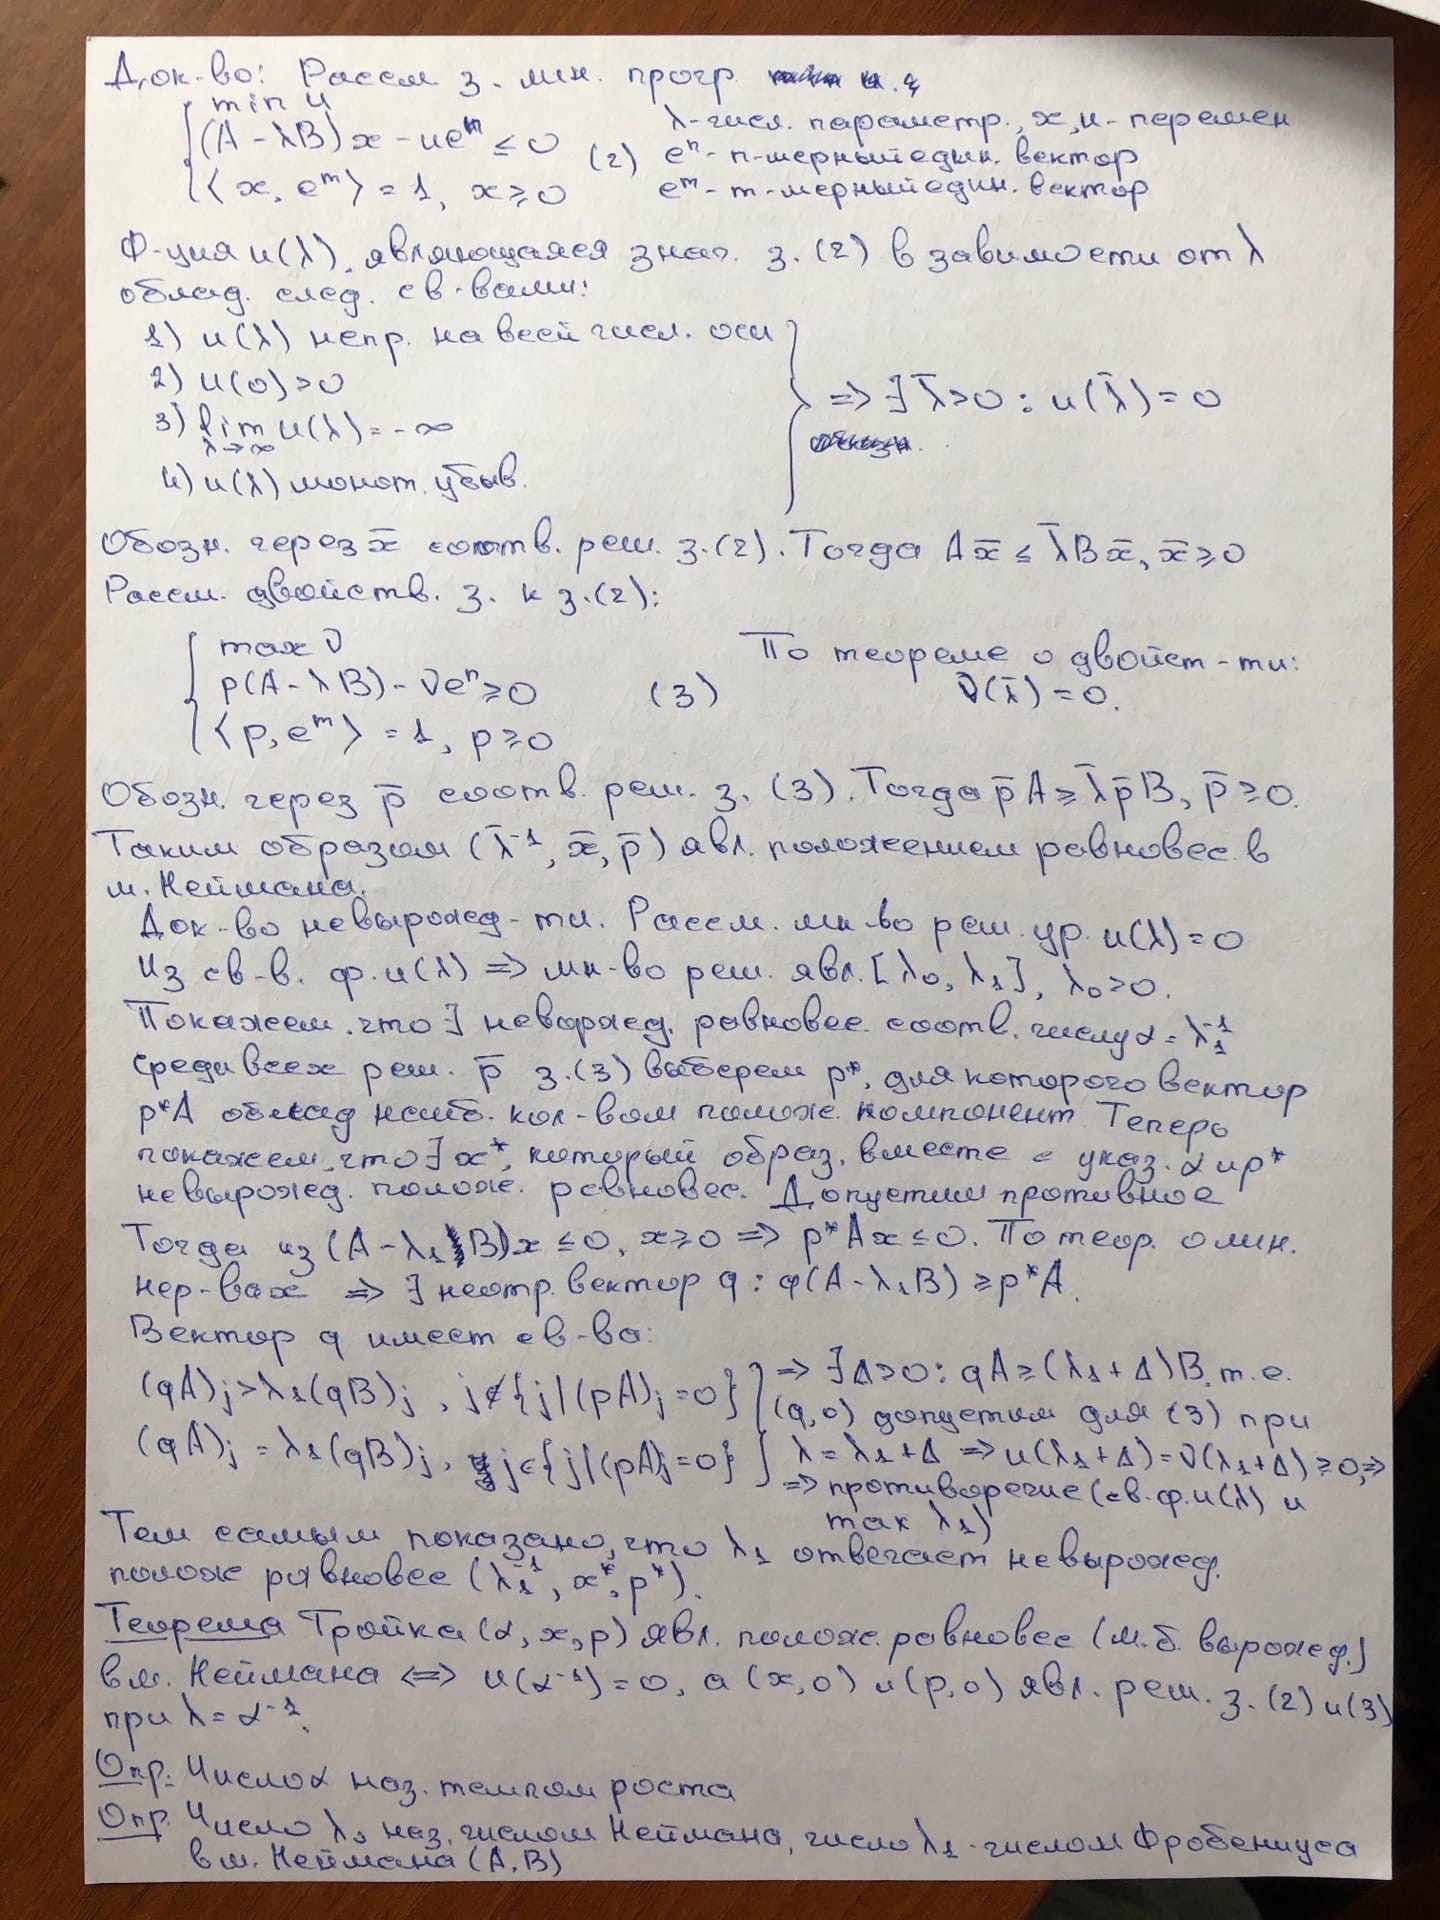 Док-во: Рассм. з. лин. прогр.
min u
(A - λB)x - ue^m ≤ 0 (2) λ-числ. параметр., x, u - перемен
⟨x, e^m⟩ = 1, x ≥ 0 e^n - n-мерный един. вектор
e^m - m-мерный един. вектор
Ф-ция u(λ), являющаяся знач. з. (2) в завимости от λ
облад. след. св-вами:
1) u(λ) непр. на всей числ. оси
2) u(0) > 0
3) lim_{λ→∞} u(λ) = -∞
4) u(λ) монот. убыв.
=> ∃ λ̄ > 0 : u(λ̄) = 0
Обозн. через x̄ соотв. реш. з. (2). Тогда Ax̄ ≤ λ̄Bx̄, x̄ ≥ 0
Рассм. двойств. з. к з. (2):
max ν
p(A - λB) - νe^n ≥ 0 (3)
⟨p, e^m⟩ = 1, p ≥ 0
По теореме о двойст-ти:
ν(λ̄) = 0.
Обозн. через p̄ соотв. реш. з. (3). Тогда p̄A ≥ λ̄p̄B, p̄ ≥ 0.
Таким образом (λ̄^{-1}, x̄, p̄) явл. положением равновес. в
м. Неймана.
Док-во невырожд-ти. Рассм. мн-во реш. ур. u(λ) = 0
Из св-в. ф. u(λ) => мн-во реш. явл. [λ₀, λ₁], λ₀ > 0.
Покажем, что ∃ неворжед. равновес. соотв. числу α = λ₁^{-1}
Среди всех реш. p̄ з. (3) выберем p*, для которого вектор
p*A облад наиб. кол-вом полож. компонент. Теперь
покажем, что ∃ x*, который образ. вместе с указ. α и p*
невырожд. полож. равновес. Допустим противное
Тогда из (A - λ₁B)x ≤ 0, x ≥ 0 => p*Ax ≤ 0. По теор. о лин.
нер-вах => ∃ неотр. вектор q : q(A - λ₁B) ≥ p*A.
Вектор q имеет св-ва:
(qA)j > λ₁(qB)j, j ∉ {j | (pA)j = 0}
(qA)j = λ₁(qB)j, j ∈ {j | (pA)j = 0}
=> ∃ Δ > 0 : qA ≥ (λ₁ + Δ)B, т.е.
(q, 0) допустим для (3) при
λ = λ₁ + Δ => u(λ₁ + Δ) = ν(λ₁ + Δ) ≥ 0, =>
=> противоречие (св. ф. u(λ) и
max λ₁)
Тем самым показано, что λ₁ отвечает невырожд.
полож равновес (λ₁^{-1}, x*, p*).
Теорема Тройка (α, x, p) явл. полож. равновес (м.б. вырожд.)
в м. Неймана <=> u(α^{-1}) = 0, а (x, 0) и (p, 0) явл. реш. з. (2) и (3)
при λ = α^{-1}.
Опр: Число α наз. темпом роста
Опр. Число λ₀ наз. числом Неймана, число λ₁ - числом Фробениуса
в м. Неймана (A, B)